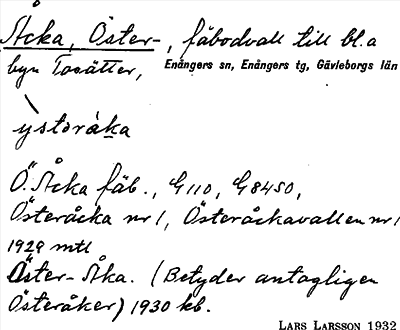 Åcka, Öster-, fäbodvall till bl.a
byn Tosätter, Enångers sn, Enångers tg, Gävleborgs län
ystoråka
Ö. Åcka fäb., G110, G8450,
Österåcka nr 1, Österåckavallen nr 1
1929 mtl
Öster-Åka. (Betyder antagligen
Österåker) 1930 kb.
LARS LARSSON 1932